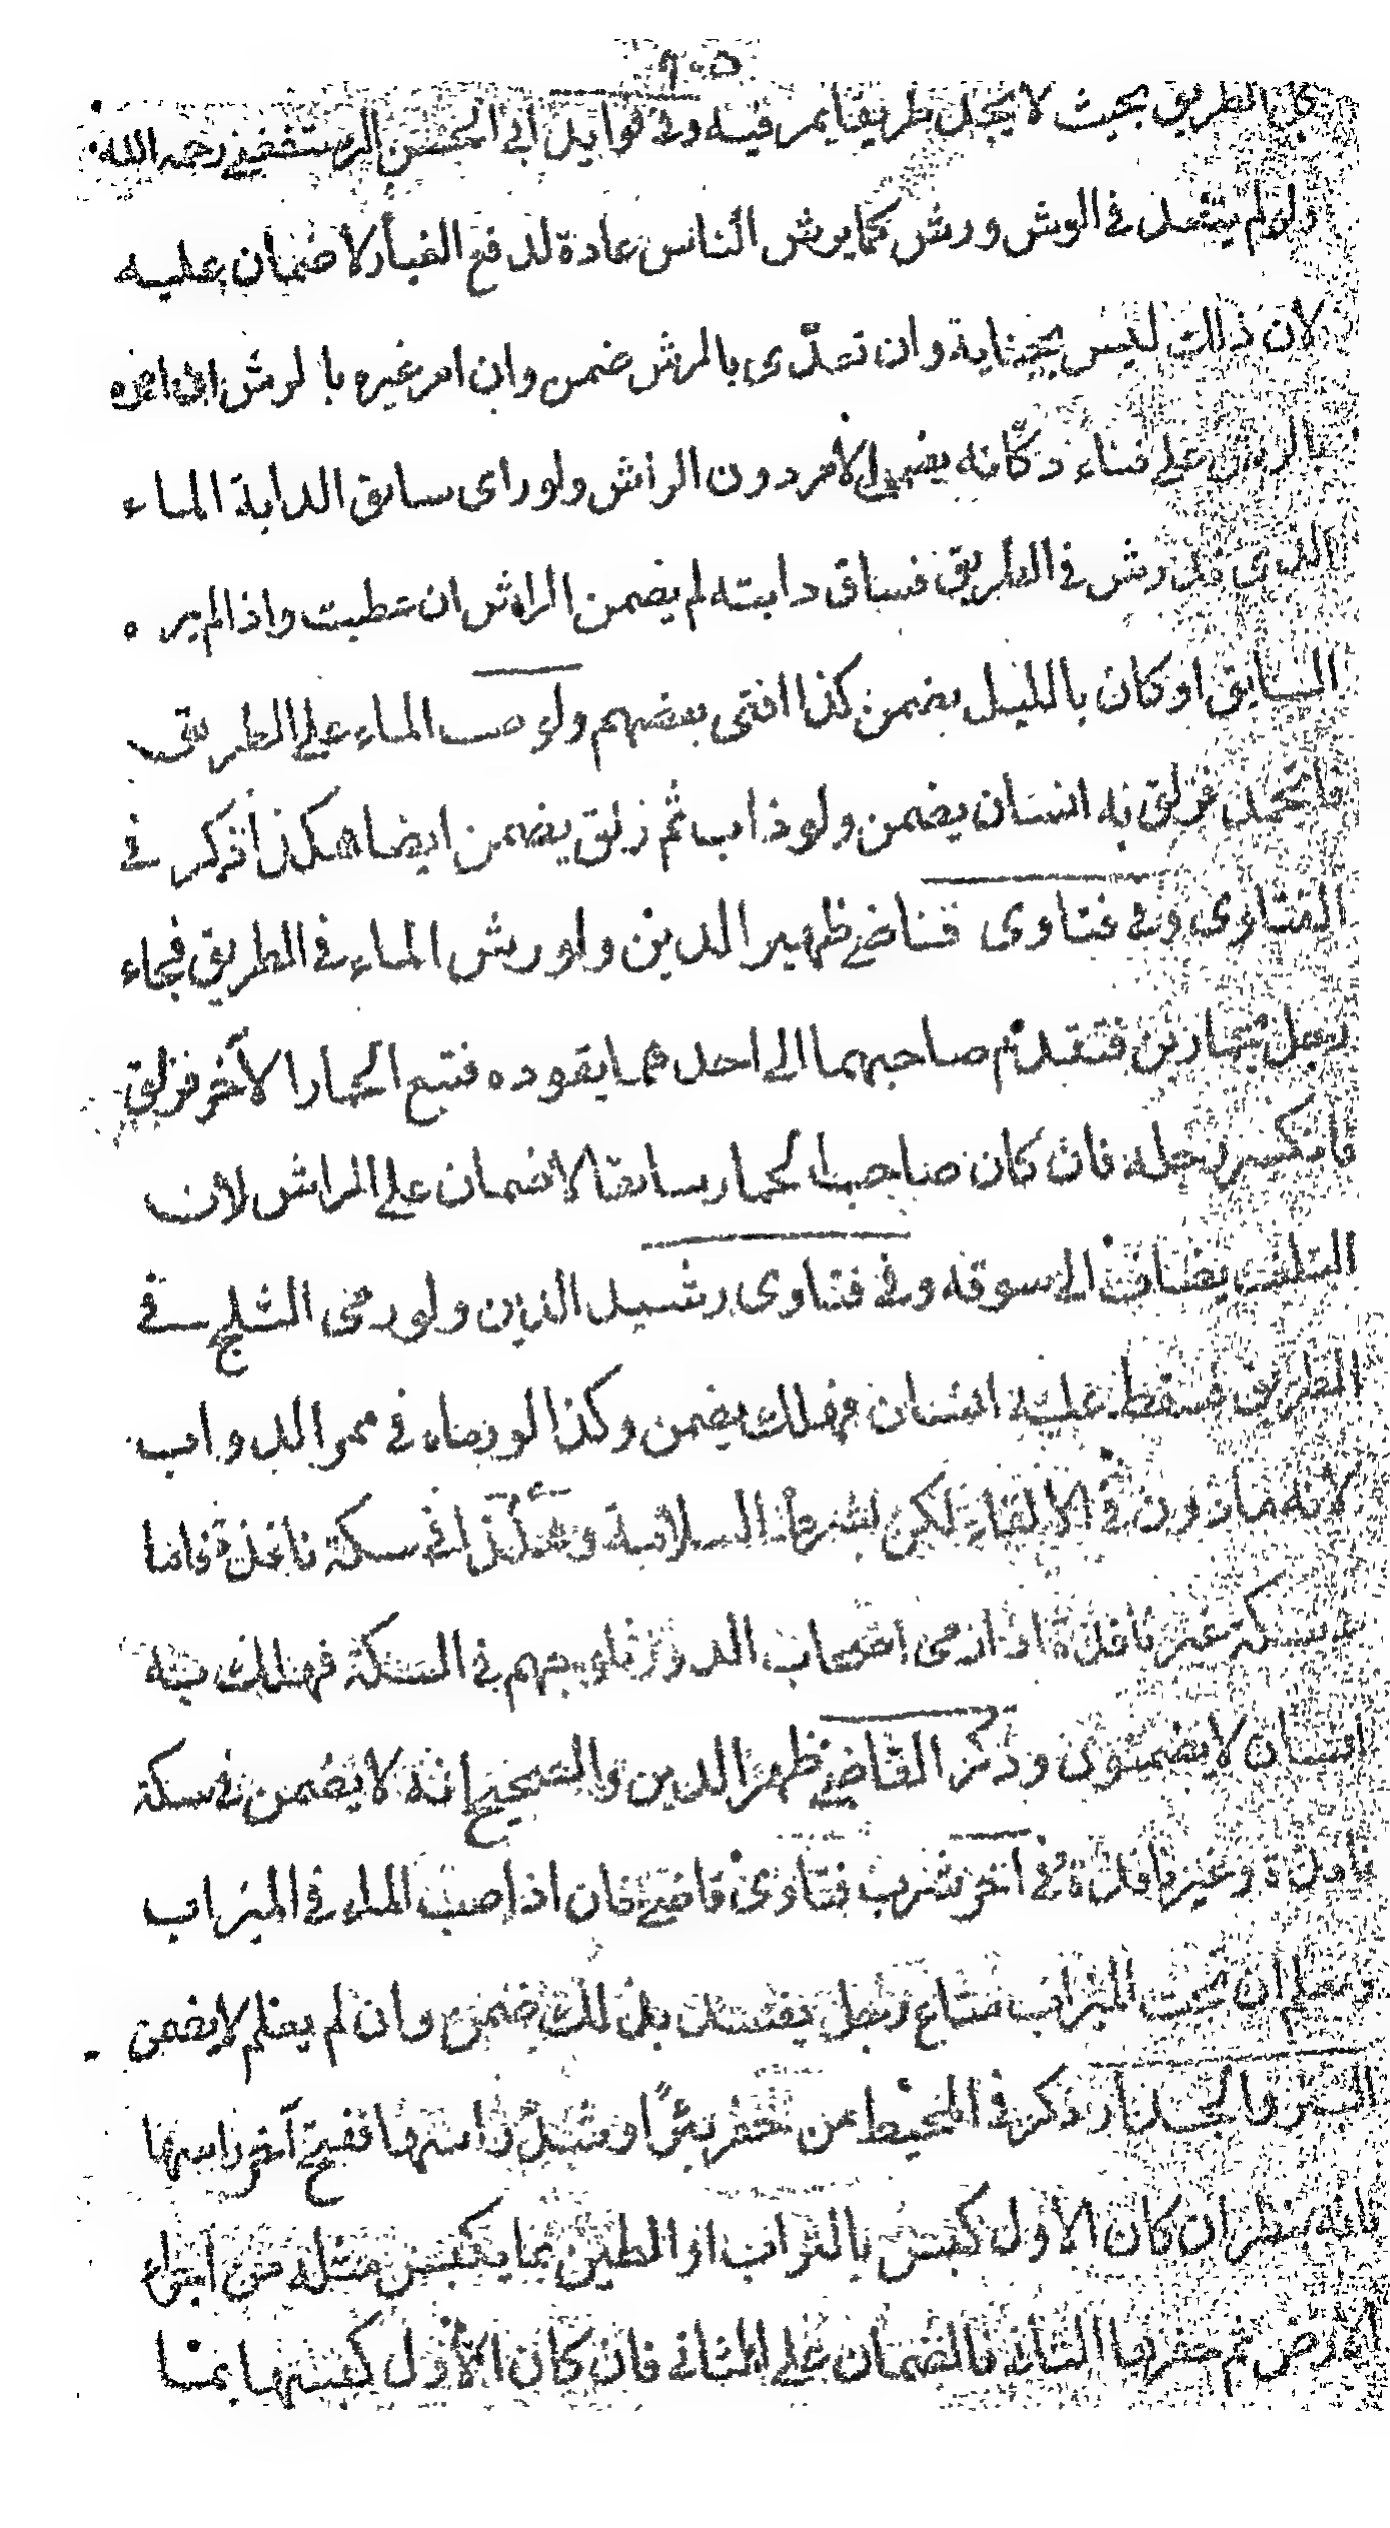 ٩٠٥
في الطريق بحيث لا يجد طريقا يمر فيه وفي فوايد ابي الحسن الرستغفني رحمه الله
ولو لم يتعد في الرش ورش كما يرش الناس عادة لدفع الغبار لا ضمان عليه
لان ذلك ليس بجناية وان تعدّى بالرش ضمن وان امر غيره بالرش ان امره
بالرش على فناء دكانه يضمن الآمر دون الراش ولو راى سايق الدابة الماء
الذي قد رش في الطريق فساق دابته لم يضمن الراش ان عطبت واذا لم ير
السايق او كان بالليل يضمن كذا افتى بعضهم ولو صب الماء على الطريق
فانجمد فزلق به انسان يضمن ولو ذاب ثم زلق يضمن ايضا هكذا ذكر في
الفتاوى وفي فتاوى قاضي ظهير الدين ولو رش الماء في الطريق فجاء
رجل بحمارين فتقدم صاحبهما الى احدهما يقوده فتبع الحمار الآخر فزلق
فانكسر رجله فان كان صاحب الحمار سايقا لا ضمان على الراش لان
التلف يضاف الى سوقه وفي فتاوى رشيد الدين ولو رمى الثلج في
الطريق فسقط عليه انسان فهلك يضمن وكذا لو رماه في ممر الدواب
لانه ماذون في الالقاء لكن بشرط السلامة وهذا في سكة نافذة فاما
في سكة غير نافذة اذا رمى اصحاب الدور ثلوجهم في السكة فهلك به
انسان لا يضمنون وذكر القاضي ظهير الدين والصحيح انه لا يضمن في سكة
نافذة وغير نافذة في آخر شرب فتاوى قاضي خان اذا صب الماء في الميزاب
ويعلم ان تحت الميزاب متاع رجل يفسد بذلك ضمن وان لم يعلم لا يضمن
البئر والجدار ذكر في المحيط من حفر بئرا وسد راسها ففتح آخر راسها
فانه ينظر ان كان الاول كبس بالتراب او الطين بما يكبس مثله من اجزاء
الارض ثم حفرها الثاني فالضمان على الثاني فان كان الاول كبسها بما